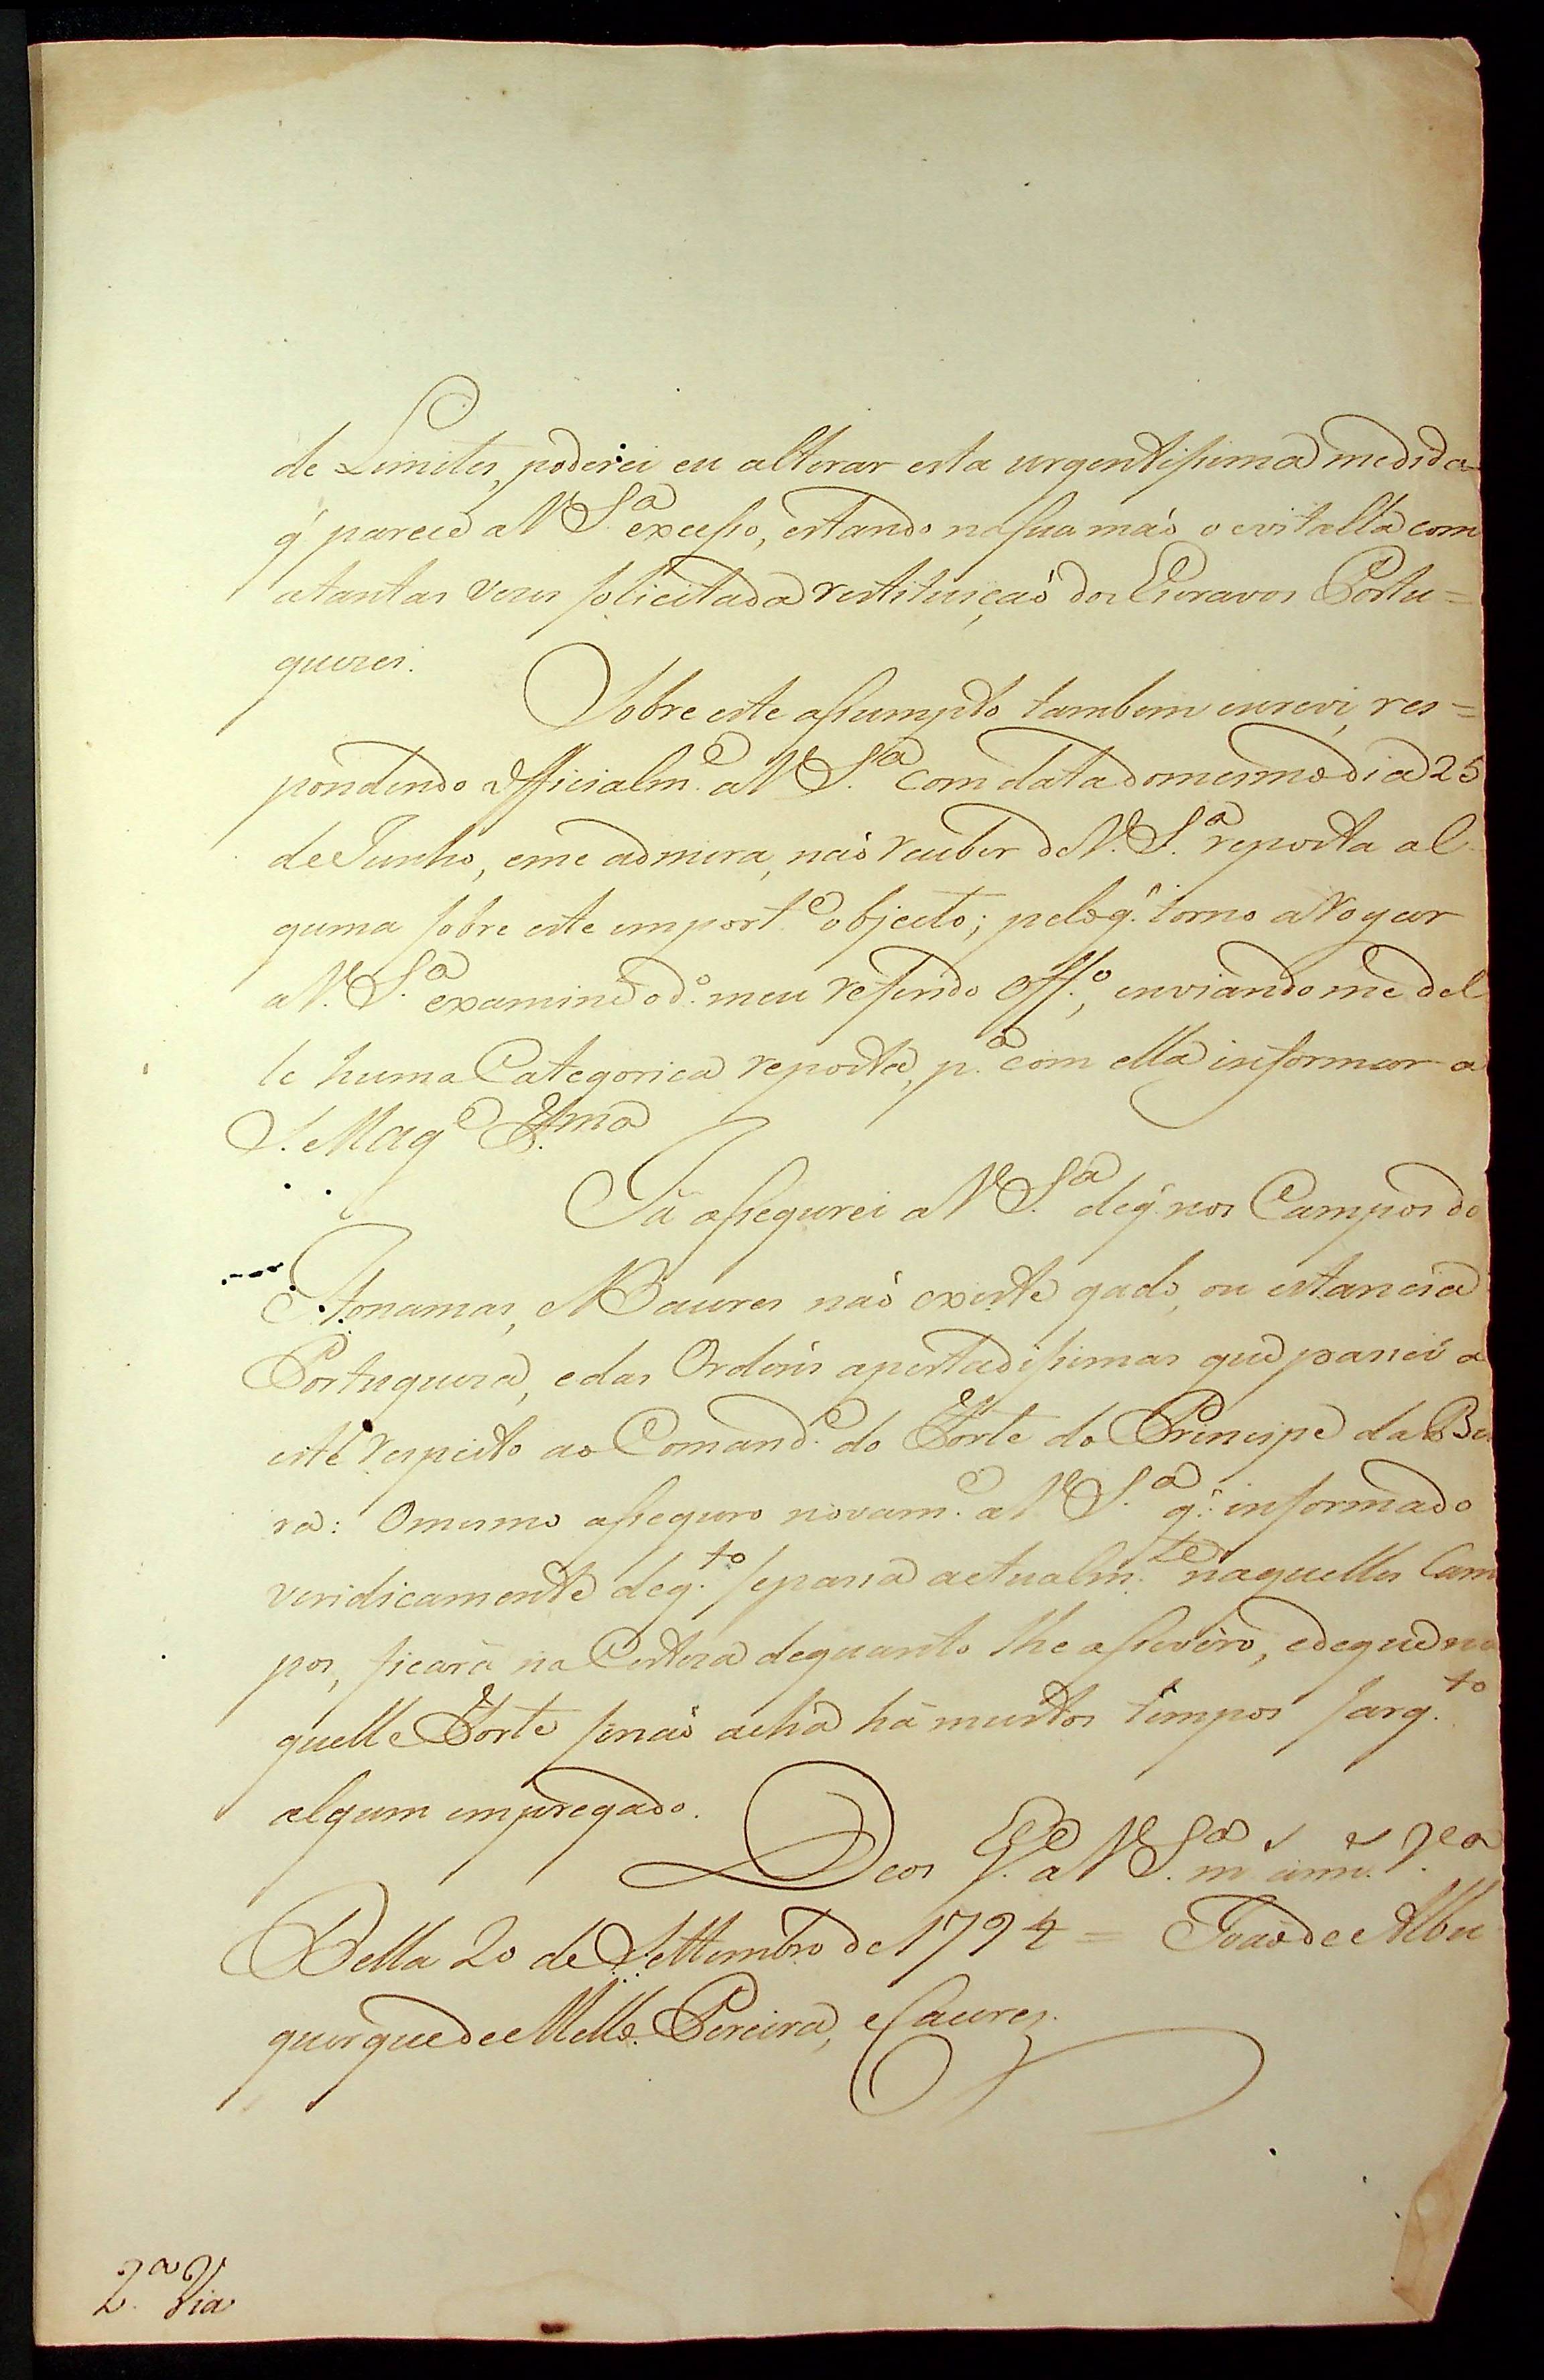 de Limites, poderei eu alterar esta urgentissima medida
q̃ parece a V S.ª excesso, estando na sua maõ o evitalla com
a tantas vezes solicitada restituiçaõ dos Escravos Portu=
guezes.
Sobre este assumpto tambem escrevi, res=
pondendo officialm.e a V S.ª com data do mesmo dia 25
de Junho, e me admira, naõ receber de V. S.ª reposta al
guma sobre este import.e objecto; pelo q̃. torno a rogar
a V. S.ª examine o d.º meu referido Off.º, enviando me del
le huma Categorica reposta, p.ª com ella informar a
S. Mag.e F.ma
Já assegurei a V S.ª de q̃ nos Campos de
Itonamas, e Baures naõ existe gado, ou estancia
Portugueza, e das Ordens apertadissimas que passei a
este respeito ao Comand.e do Forte do Principe da Bei
ra: O mesmo asseguro novam.e a V S.ª q̃. informado
veridicamente de q.to se passa actualm.te naquelles Cam
pos, ficará na Certeza de quanto lhe assevero, e de que na
quelle Forte se naõ acha há muitos tempos Sarg.to
algum empregado.
Deos G.e a V S.ª m.s ann.s V.ª
Bella 20 de Settembro de 1794 = Joaõ de Albu
querque de Mello Pereira, e Caceres.
2.ª Via